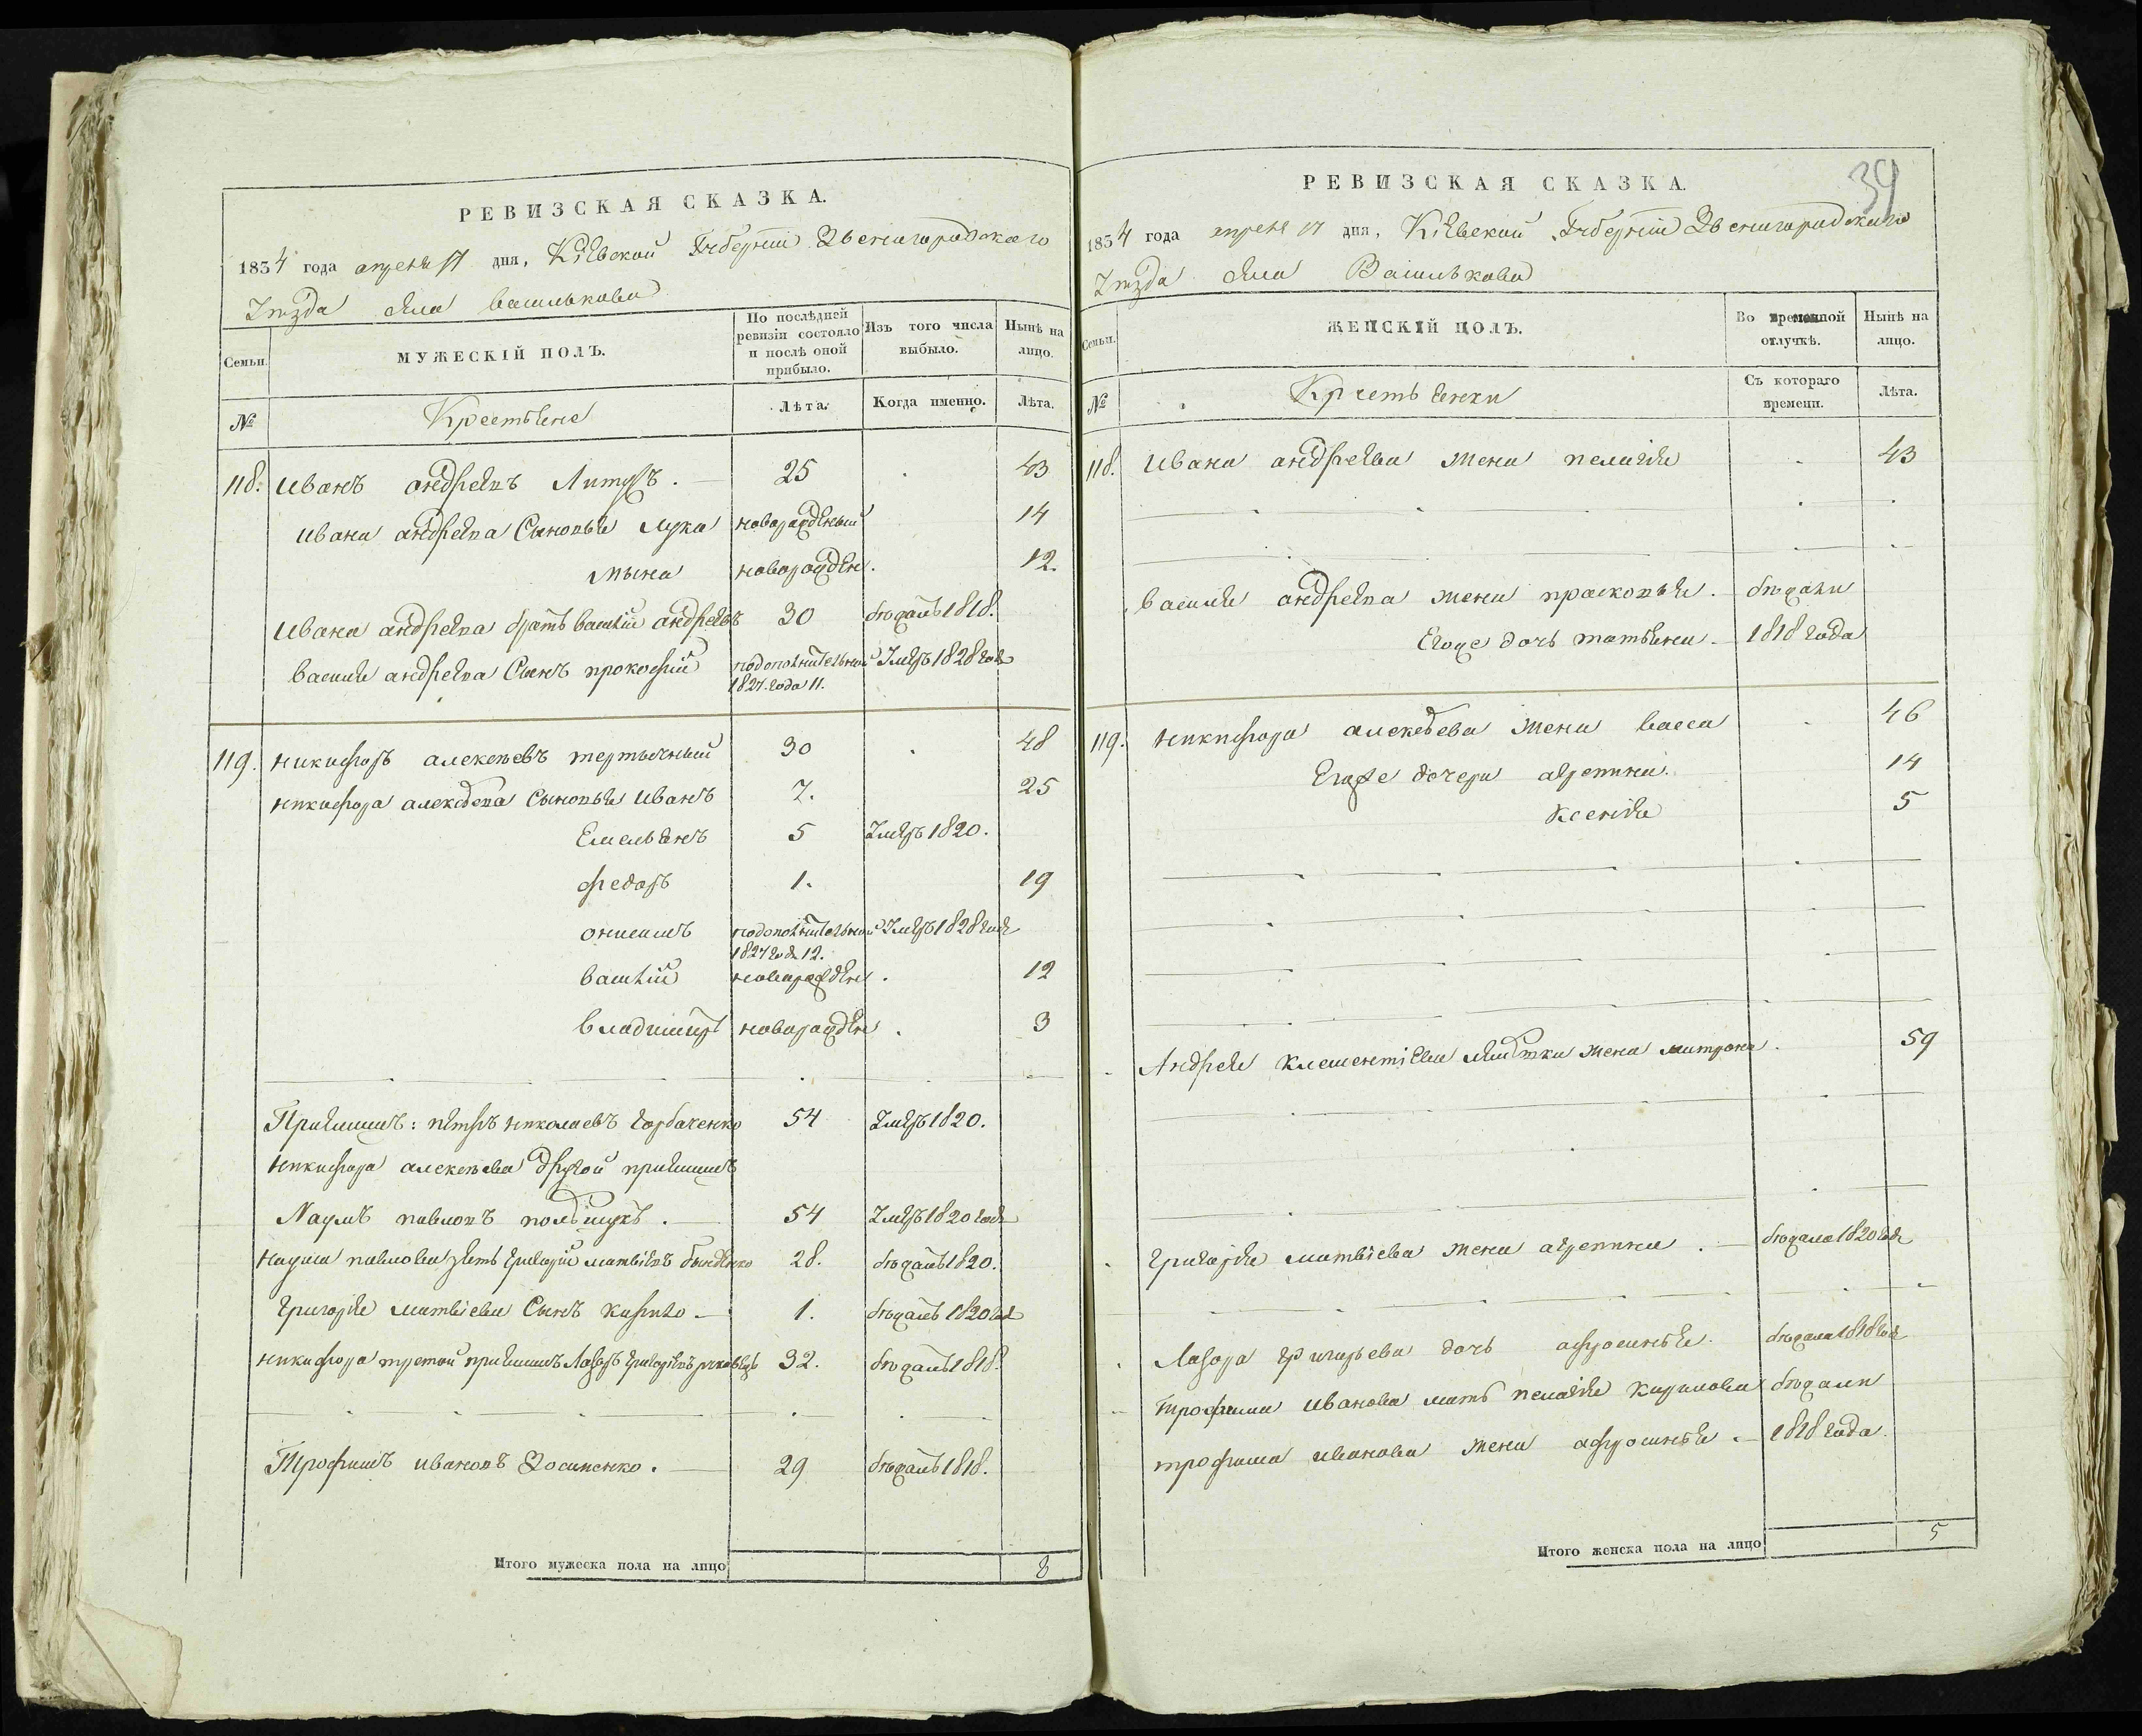 РЕВИЗСКАЯ СКАЗКА.
1834 года апреля 17 дня, Кіевской Губерніи Звенигородскаго
Уезда села Василькова
Семьи.
МУЖЕСКІЙ ПОЛЪ.
По послѣдней ревизіи состояло и послѣ оной прибыло.
Изъ того числа выбыло.
Нынѣ на лицо.
№
Крестьяне
Лѣта.
Когда именно.
Лѣта.
118. Иванъ андреевъ Литусъ. 25 43
Ивана андреева Сыновья Лука новорожденый 14
новорожден. 12.
Ивана андреева братъ василій андреевъ 30 бѣжалъ 1818.
василія андреева Сынъ прокофій подополнительной 1827. года 11. Умеръ 1828 года
119. никифоръ алексѣевъ тертычный 30 48
никифора алексѣева Сыновья Иванъ 7. 25
Емельянъ 5 Умеръ 1820.
федоръ 1. 19
онисимъ подополнительной 1827 года 12. Умеръ 1828 года
василій новорожден. 12
владимиръ новорожден. 3
Приимышъ: петръ николаевъ Горбаченко 54 Умеръ 1820.
никифора алексѣева другой приимышъ
Наумъ павловъ полѣщукъ. 54 Умеръ 1820 года
наума павлова зять григорій матвіевъ бондаренко 28. бѣжалъ 1820.
григорія матвіева Сынъ Кирило 1. бѣжалъ 1820 года
никифора третой приимышъ Лазарь григоріевъ 32. бѣжалъ 1818.
Трофимъ ивановъ Иосипенко. 29 бѣжалъ 1818.
Итого мужеска пола на лицо 8
39
РЕВИЗСКАЯ СКАЗКА.
1834 года апреля 17 дня, Кіевской Губерніи Звенигородскаго
Уезда села Василькова
Семьи.
ЖЕНСКІЙ ПОЛЪ.
Во временной отлучкѣ.
Нынѣ на лицо.
№
Крестьянки
Съ котораго времени.
Лѣта.
118. Ивана андреева жена пелагія 43
василія андреева жена прасковья. бѣжали
Егоже дочь татьяна 1818 года
119. никифора алексѣева жена васса 46
Егоже дочери агрепина. 14
Ксенія 5
Андрея Клементіева жена матрона. 59
григорія матвіева жена агрепина. бѣжала 1820 года
Лазора григорьева дочь афросинья. бѣжала 1818 года
трофима иванова мать пелагія Кирилова бѣжали
трофима иванова жена афросинья. 1818 года.
Итого женска пола на лицо 5